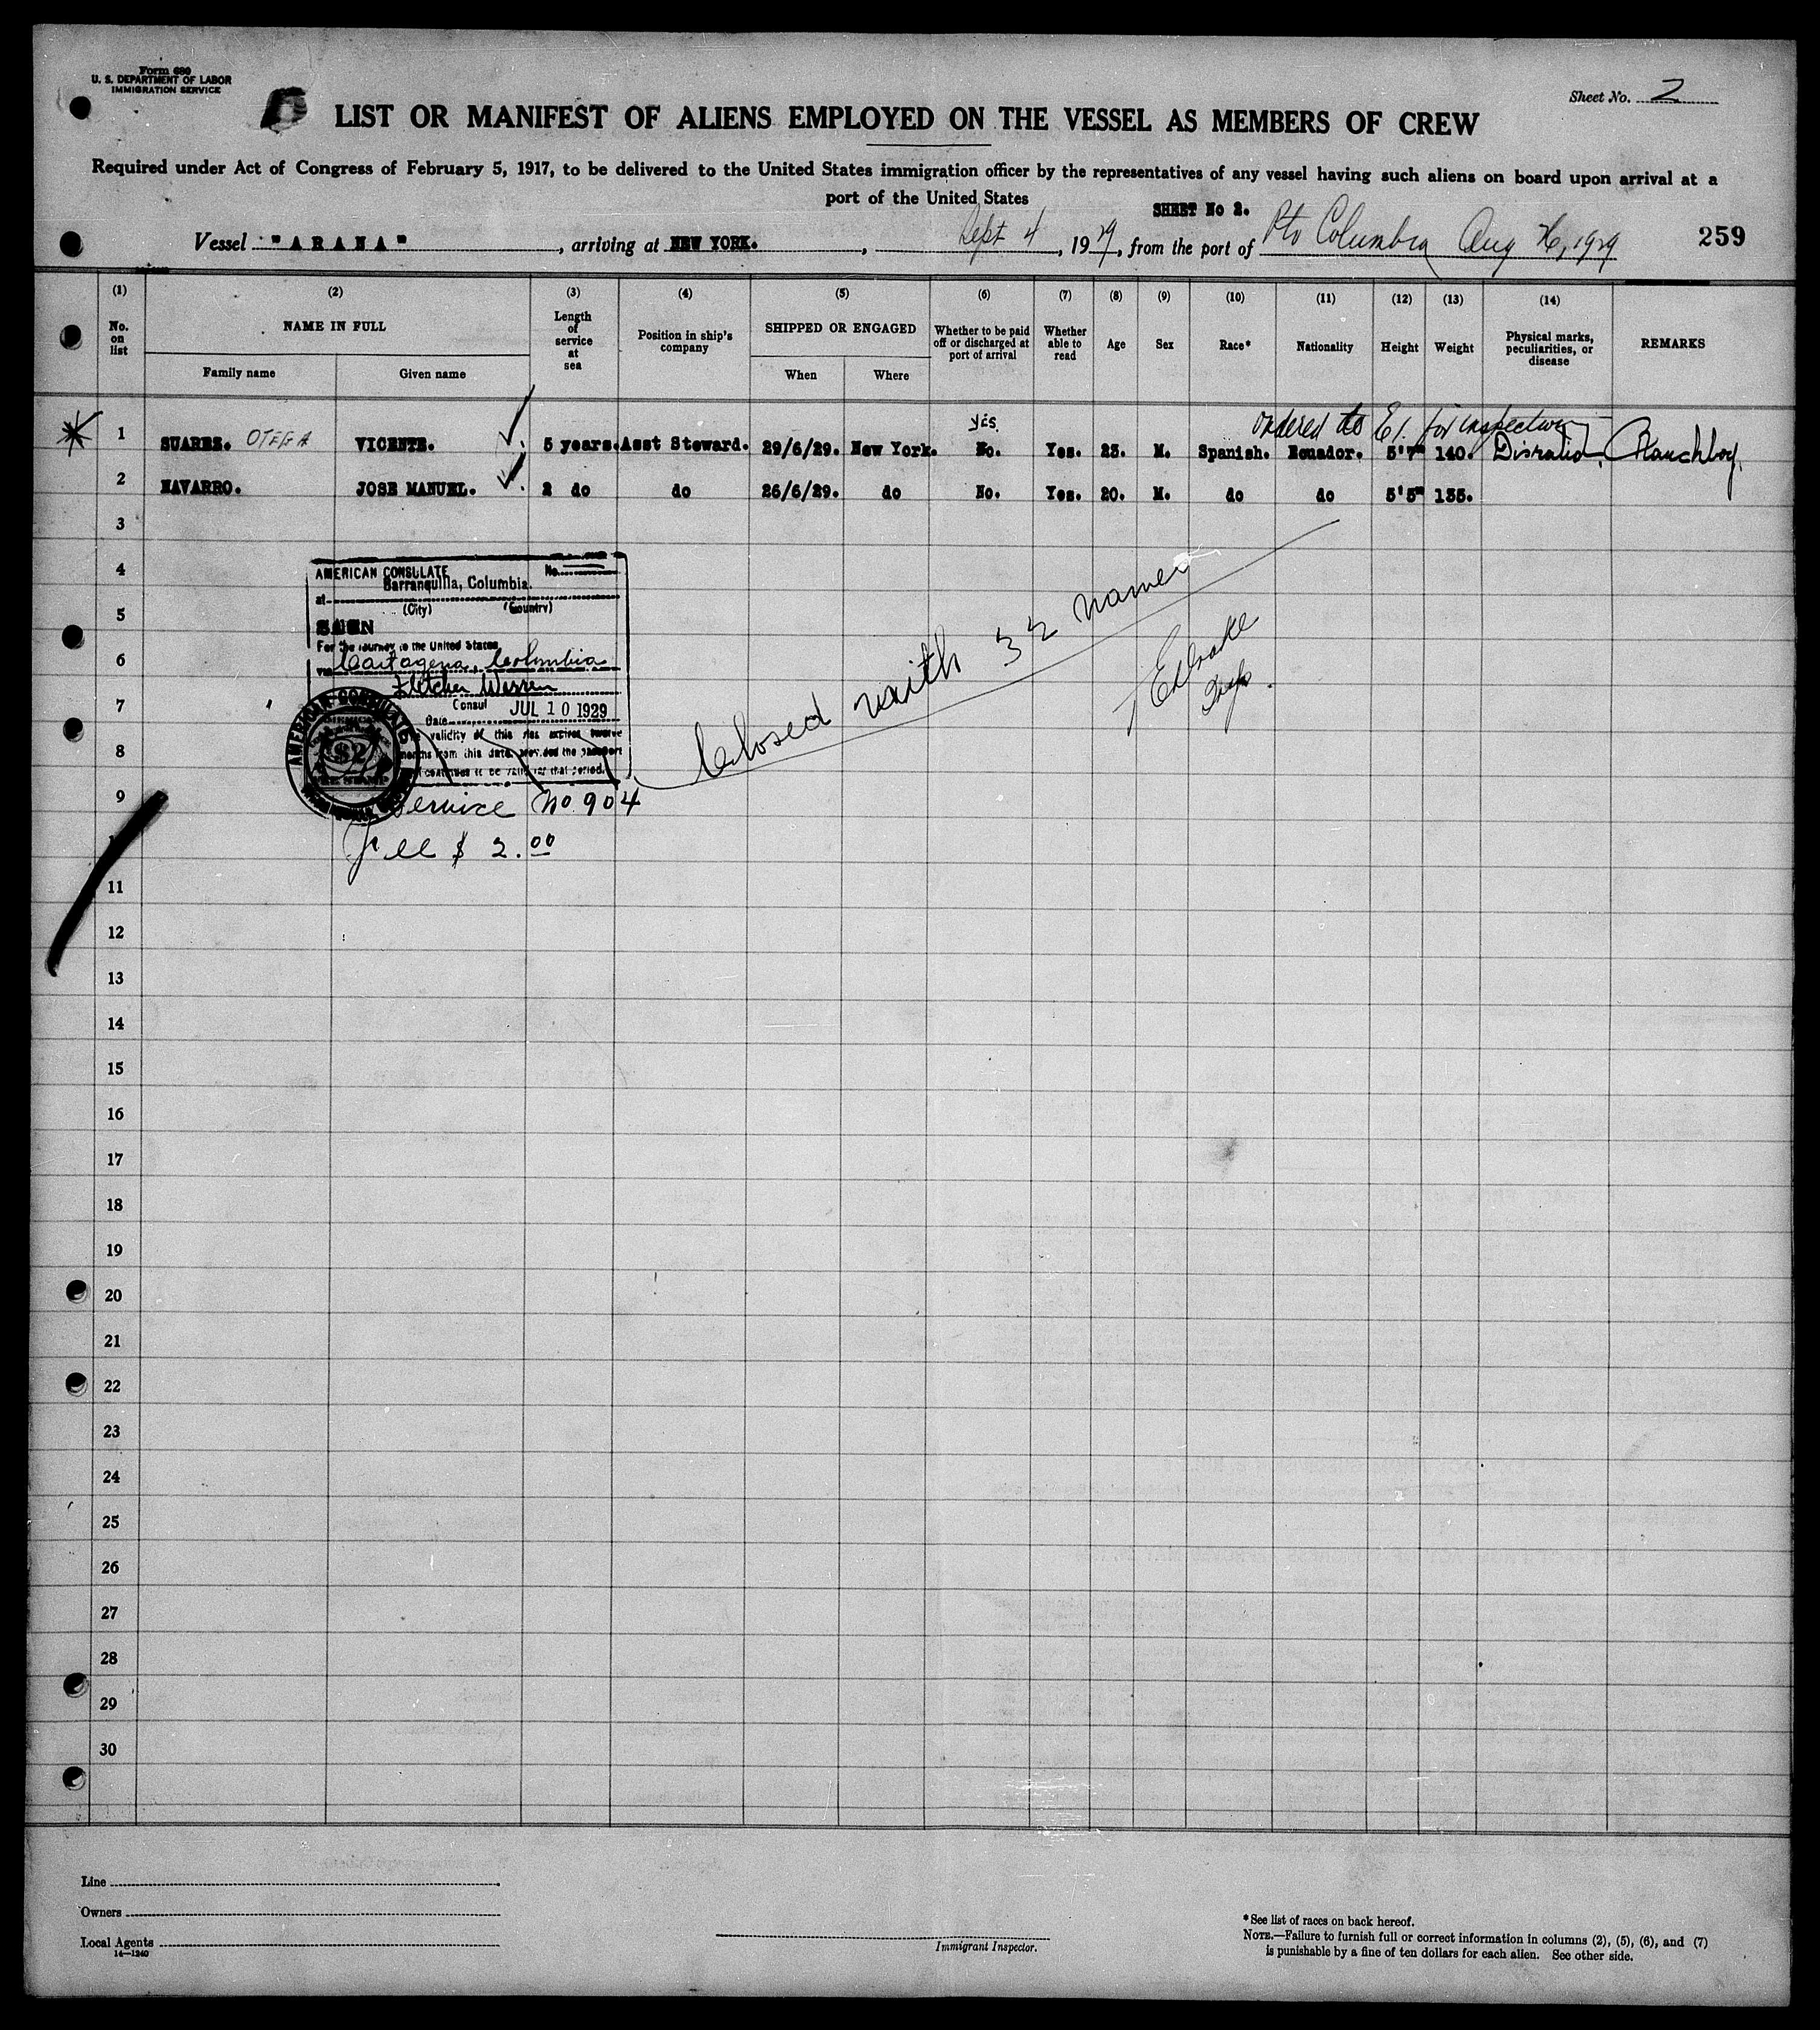 Form 680
U. S. DEPARTMENT OF LABOR
IMMIGRATION SERVICE
Sheet No. 2
LIST OR MANIFEST OF ALIENS EMPLOYED ON THE VESSEL AS MEMBERS OF CREW
Required under Act of Congress of February 5, 1917, to be delivered to the United States immigration officer by the representatives of any vessel having such aliens on board upon arrival at a
port of the United States
SHEET No 2.
Vessel "ARANA", arriving at NEW YORK., Sept 4, 1929, from the port of Pto Columbia Aug 26, 1929
259
(1) (2) (3) (4) (5) (6) (7) (8) (9) (10) (11) (12) (13) (14)
No. on list
NAME IN FULL
Family name
Given name
Length of service at sea
Position in ship's company
SHIPPED OR ENGAGED
When
Where
Whether to be paid off or discharged at port of arrival
Whether able to read
Age
Sex
Race*
Nationality
Height
Weight
Physical marks, peculiarities, or disease
REMARKS
yes
ordered to E I. for inspection
1 SUAREZ. VICENTE. 5 years. Asst Steward. 29/6/29. New York. No. Yes. 25. M. Spanish. Ecuador. 5'7" 140.
2 NAVARRO. JOSE MANUEL. 2 do do 26/6/29. do No. Yes. 20. M. do do 5'5" 135.
3
4
5
6
7
8
9
11
12
13
14
15
16
17
18
19
20
21
22
23
24
25
26
27
28
29
30
AMERICAN CONSULATE No.
Barranquilla, Columbia.
at
(City) (Country)
SEEN
For the journey to the United States,
via Cartagena, Colombia
Fletcher Warren
Consul
Date JUL 10 1929
The validity of this visa expires twelve
months from this date, provided the passport
continues to be valid for that period.
AMERICAN CONSULATE
$2
Service No 904
Fee $ 2.00
Closed with 32 names
Line
Owners
Local Agents
14—1240
Immigrant Inspector.
*See list of races on back hereof.
NOTE.—Failure to furnish full or correct information in columns (2), (5), (6), and (7)
is punishable by a fine of ten dollars for each alien. See other side.